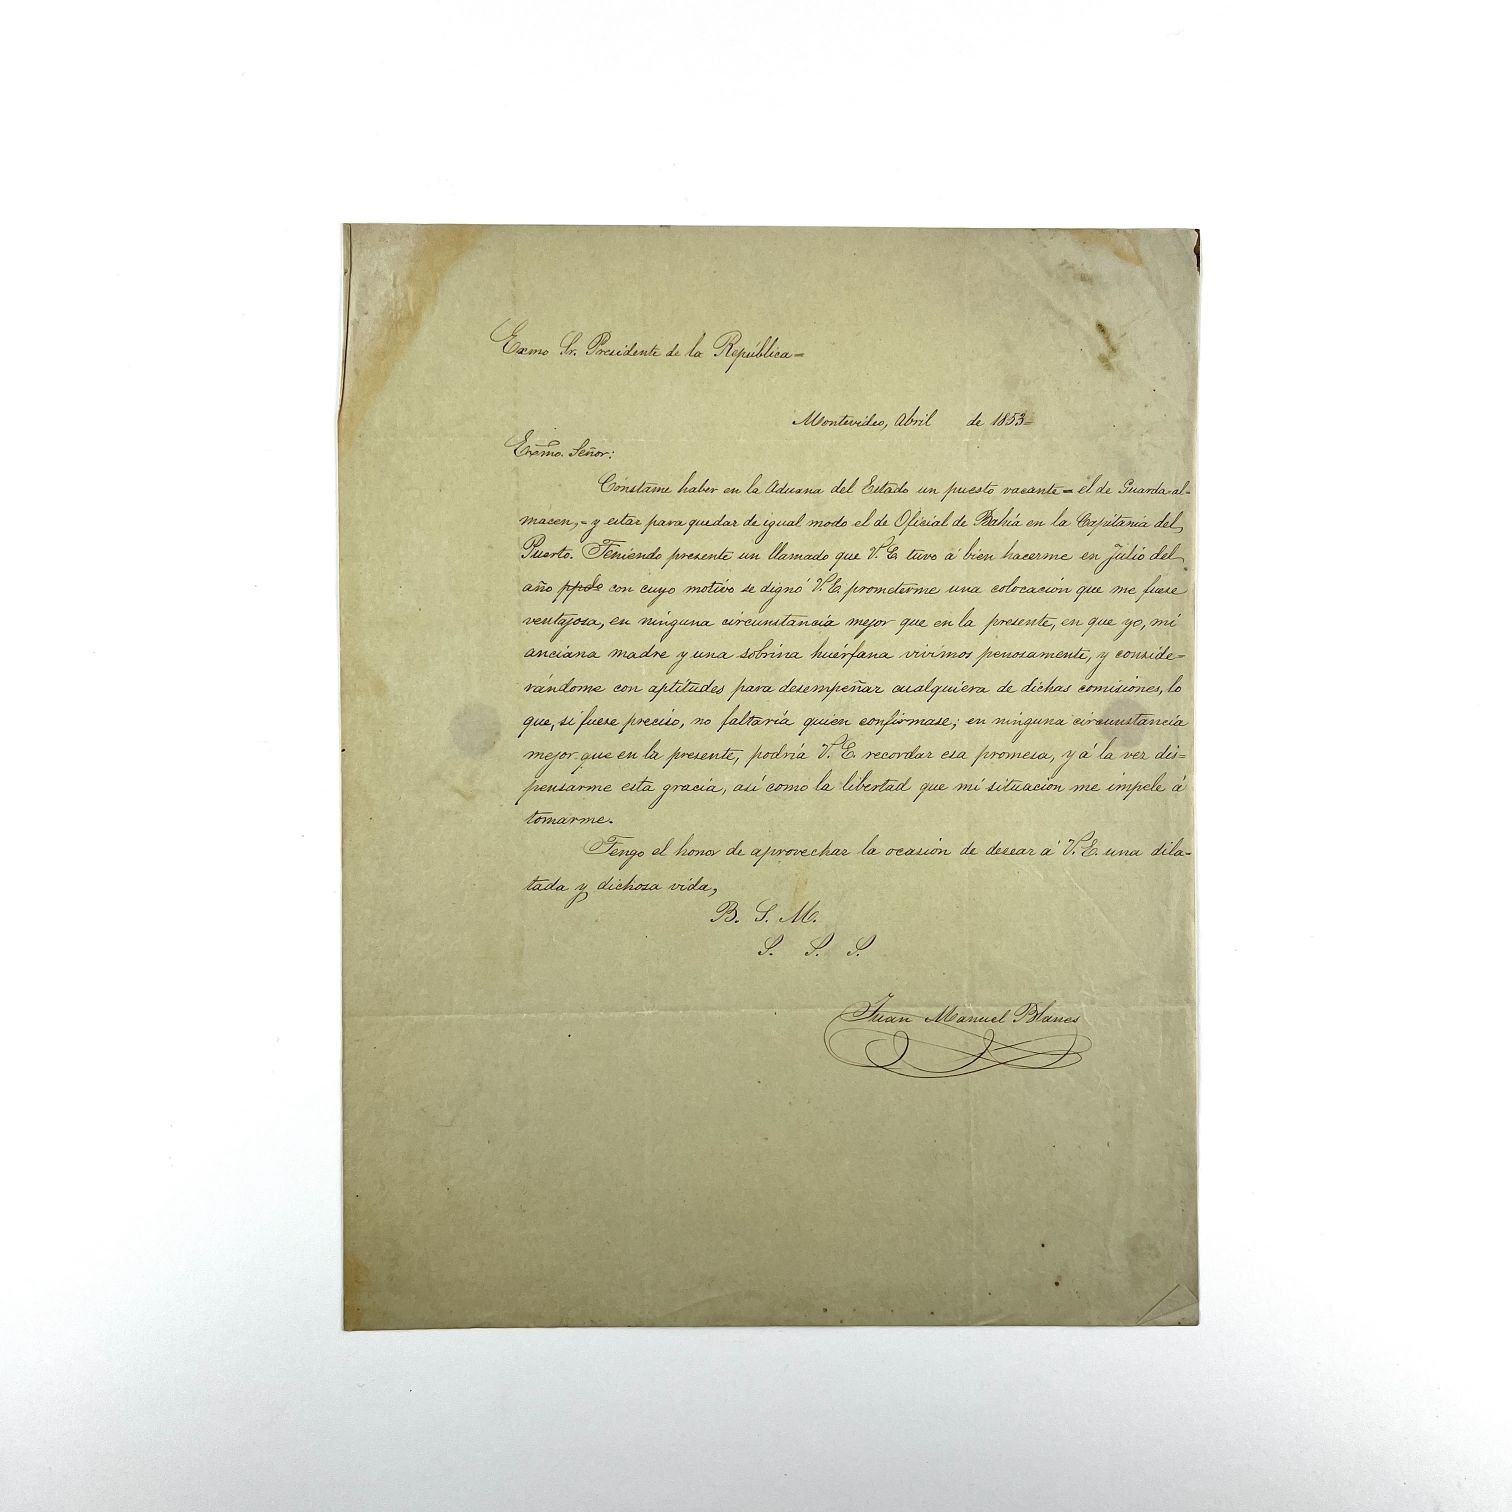 Exmo Sr. Presidente de la República=
Montevideo, Abril de 1853=
Exmo. Señor:
Cónstame haber en la Aduana del Estado un puesto vacante = el de Guarda-al=
macen, = y estar para quedar de igual modo el de Oficial de Bahía en la Capitania del
Puerto. Teniendo presente un llamado que V. E. tuvo á bien hacerme en Julio del
año ppdo con cuyo motivo se dignó V. E. prometerme una colocacion que me fuese
ventajosa, en ninguna circunstancia mejor que en la presente, en que yo, mi
anciana madre y una sobrina huérfana vivimos penosamente, y conside=
rándome con aptitudes para desempeñar cualquiera de dichas comisiones, lo
que, si fuese preciso, no faltaría quien confirmase; en ninguna circunstancia
mejor que en la presente, podría V. E. recordar esa promesa, y á la vez dis=
pensarme esta gracia, así como la libertad que mi situacion me impele á
tomarme.
Tengo el honor de aprovechar la ocasion de desear á V. E. una dila=
tada y dichosa vida,
B. S. M.
S. S. S.
Juan Manuel Blanes